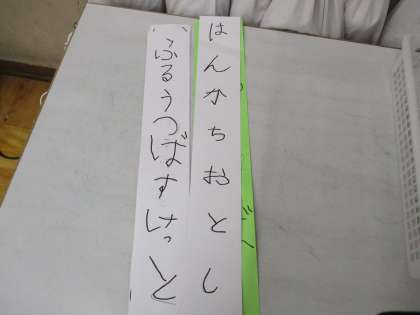 はんかちおとし
ふるうつばすけっと